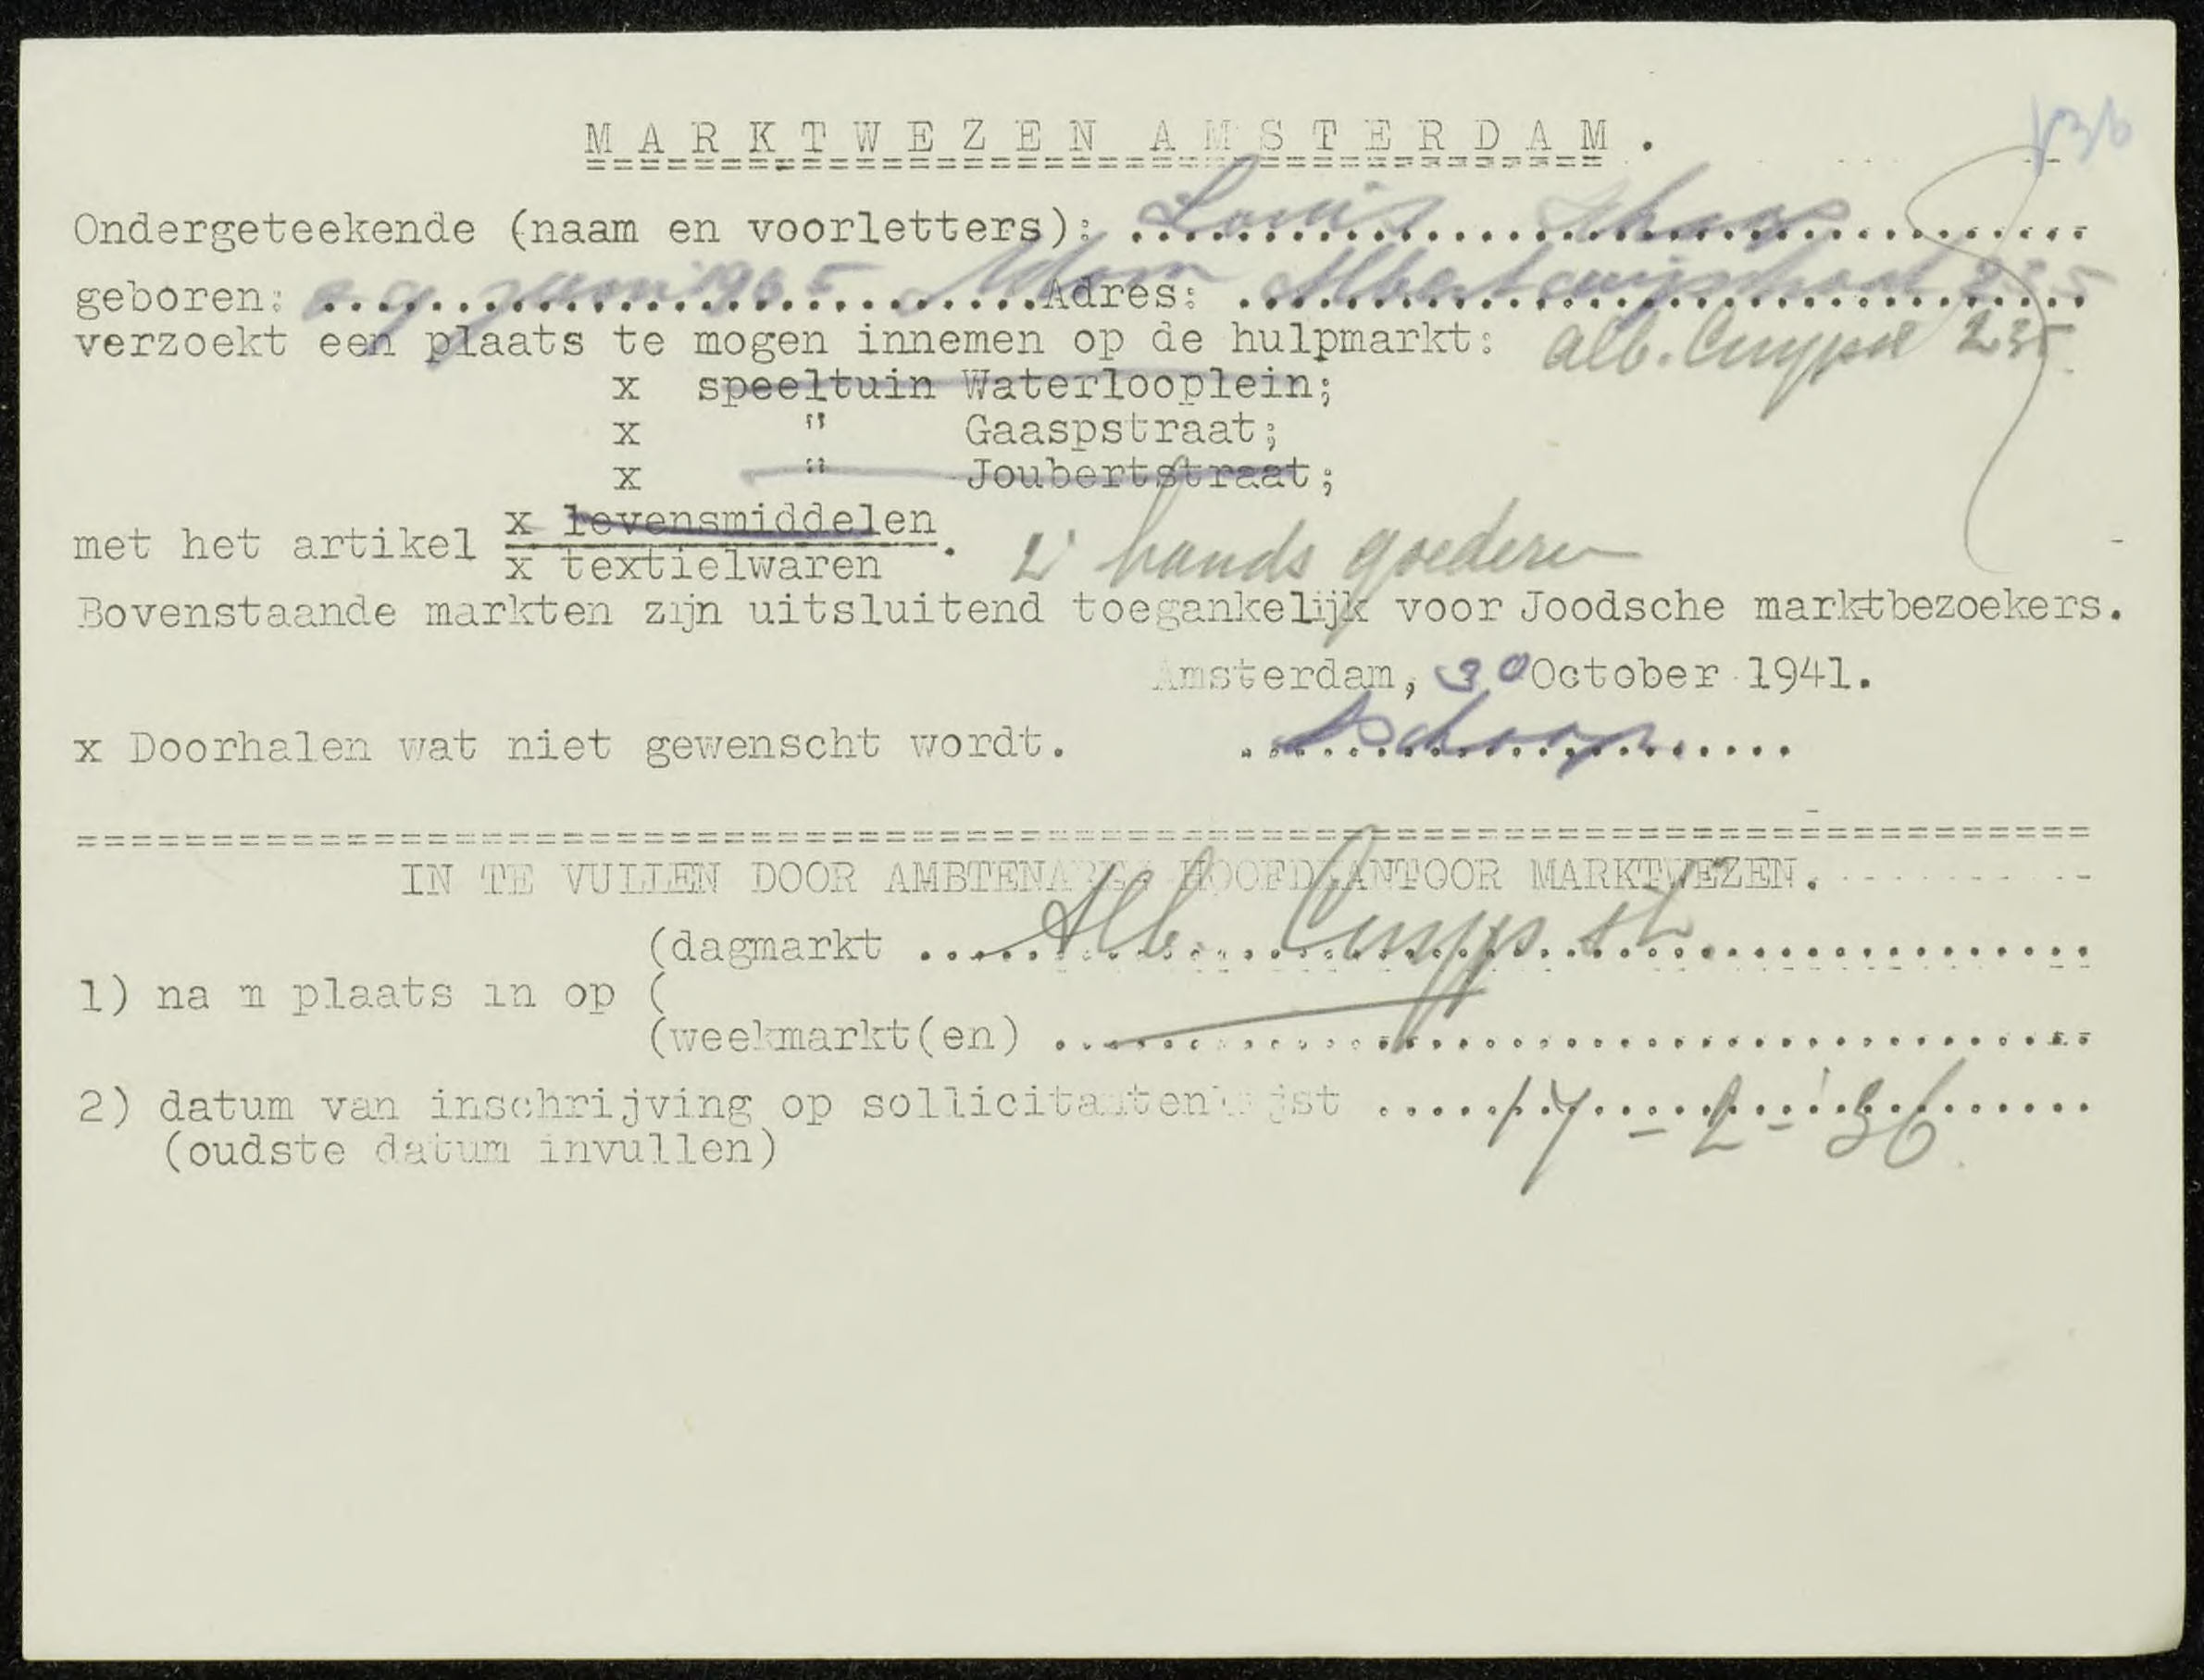 MARKTWEZEN AMSTERDAM.
136
Ondergeteekende (naam en voorletters): Louis Schaap
geboren: juni 1905 Adam Adres: Albert cuijpstraat 235
verzoekt een plaats te mogen innemen op de hulpmarkt: Alb. Cuypstr 235
x speeltuin Waterlooplein;
x " Gaaspstraat;
x " Joubertstraat;
met het artikel x levensmiddelen
x textielwaren . 2e hands goederen
Bovenstaande markten zijn uitsluitend toegankelijk voor Joodsche marktbezoekers.
Amsterdam, 30 October 1941.
x Doorhalen wat niet gewenscht wordt. LSchaap
IN TE VULLEN DOOR AMBTENAREN HOOFDKANTOOR MARKTWEZEN.
(dagmarkt Alb. Cuyp st
1) na m plaats in op (
(weekmarkt(en)
2) datum van inschrijving op sollicitantenlijst 17-2-'36
(oudste datum invullen)